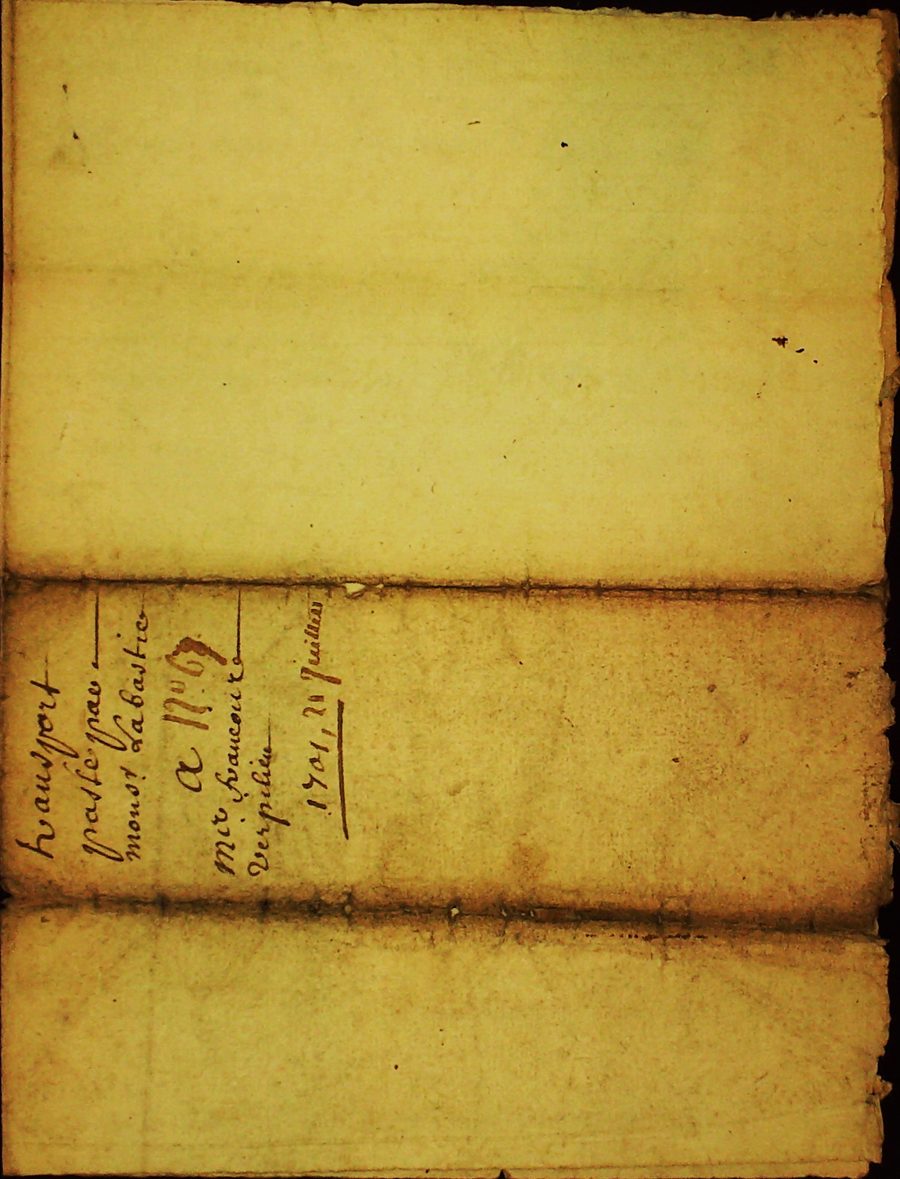 transport
passe par
monsr Labastie
a No. 67
mir francoix
Verpilieu
1701, 20 Juillet